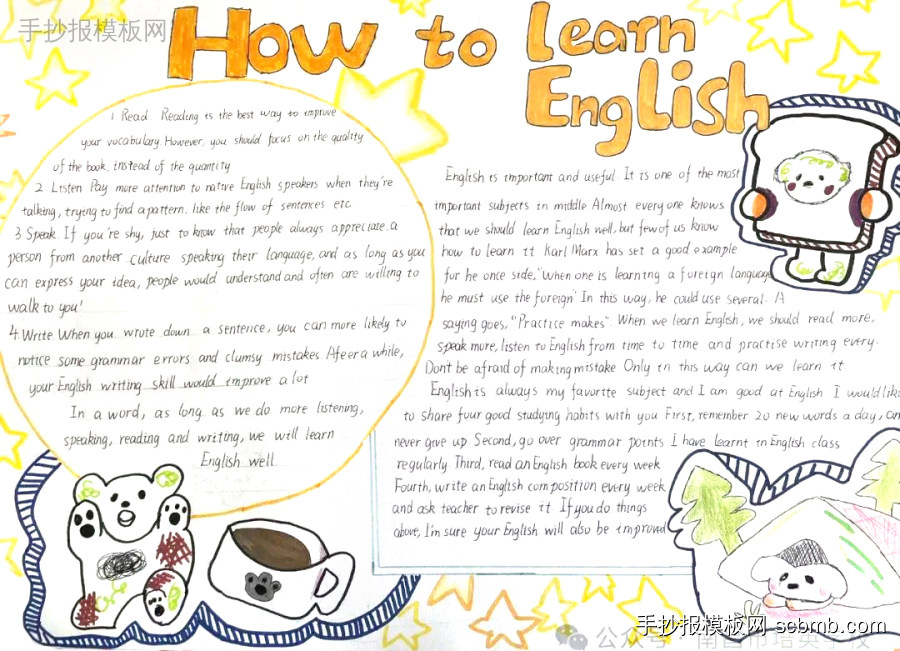 手抄报模板网
How to Learn
English
1 Read Reading is the best way to improve
your vocabulary. However, you should focus on the quality
of the book, instead of the quantity
2 Listen Pay more attention to native English speakers when they're
talking, trying to find a pattern. like the flow of sentences etc
3 Speak If you're shy, just to know that people always appreciate a
person from another culture speaking their language, and as long as you
can express your idea, people would understand and often are willing to
walk to you!
4. Write When you wrote down a sentence, you can more likely to
notice some grammar errors and clumsy mistakes Afeer a while,
your English writing skill would improve a lot
In a word, as long as we do more listening,
speaking, reading and writing, we will learn
English well
English is important and useful. It is one of the most
important subjects in middle Almost everyone knows
that we should learn English well, but few of us know
how to learn it Karl Marx has set a good example
for he once side, "When one is learning a foreign language
he must use the foreign' In this way, he could use several. A
saying goes, "Practice makes". When we learn English, we should read more,
speak more, listen to English from time to time and practise writing every.
Don't be afraid of making mistake Only in this way can we learn it
English is always my favorite subject and I am good at English I would like
to share four good studying habits with you First, remember 20 new words a day, can
never give up Second, go over grammar points I have learnt in English class
regularly Third, read an English book every week
Fourth, write an English composition every week
and ask teacher to revise it If you do things
above, I'm sure your English will also be improved
手抄报模板网 scbmb.com
公众号·南昌市培英学校